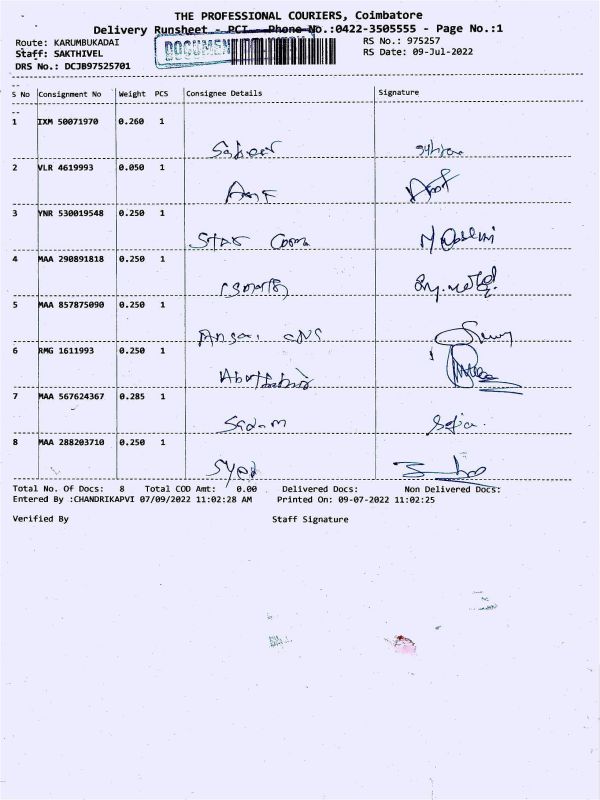 THE PROFESSIONAL COURIERS, Coimbatore
Delivery Runsheet - PCT Phone No.:0422-3505555 - Page No.:1
Route: KARUMBUKADAI RS No.: 975257
Staff: SAKTHIVEL DOCUMEN RS Date: 09-Jul-2022
DRS No.: DCJB97525701
S No Consignment No Weight PCS Consignee Details Signature
1 IXM 50071970 0.260 1
2 VLR 4619993 0.050 1
3 YNR 530019548 0.250 1
Star
4 MAA 290891818 0.250 1
5 MAA 857875090 0.250 1
Ansar
6 RMG 1611993 0.250 1
7 MAA 567624367 0.285 1
Sadam
8 MAA 288203710 0.250 1
Syed
Total No. Of Docs: 8 Total COD Amt: 0.00 Delivered Docs: Non Delivered Docs:
Entered By :CHANDRIKAPVI 07/09/2022 11:02:28 AM Printed On: 09-07-2022 11:02:25
Verified By Staff Signature